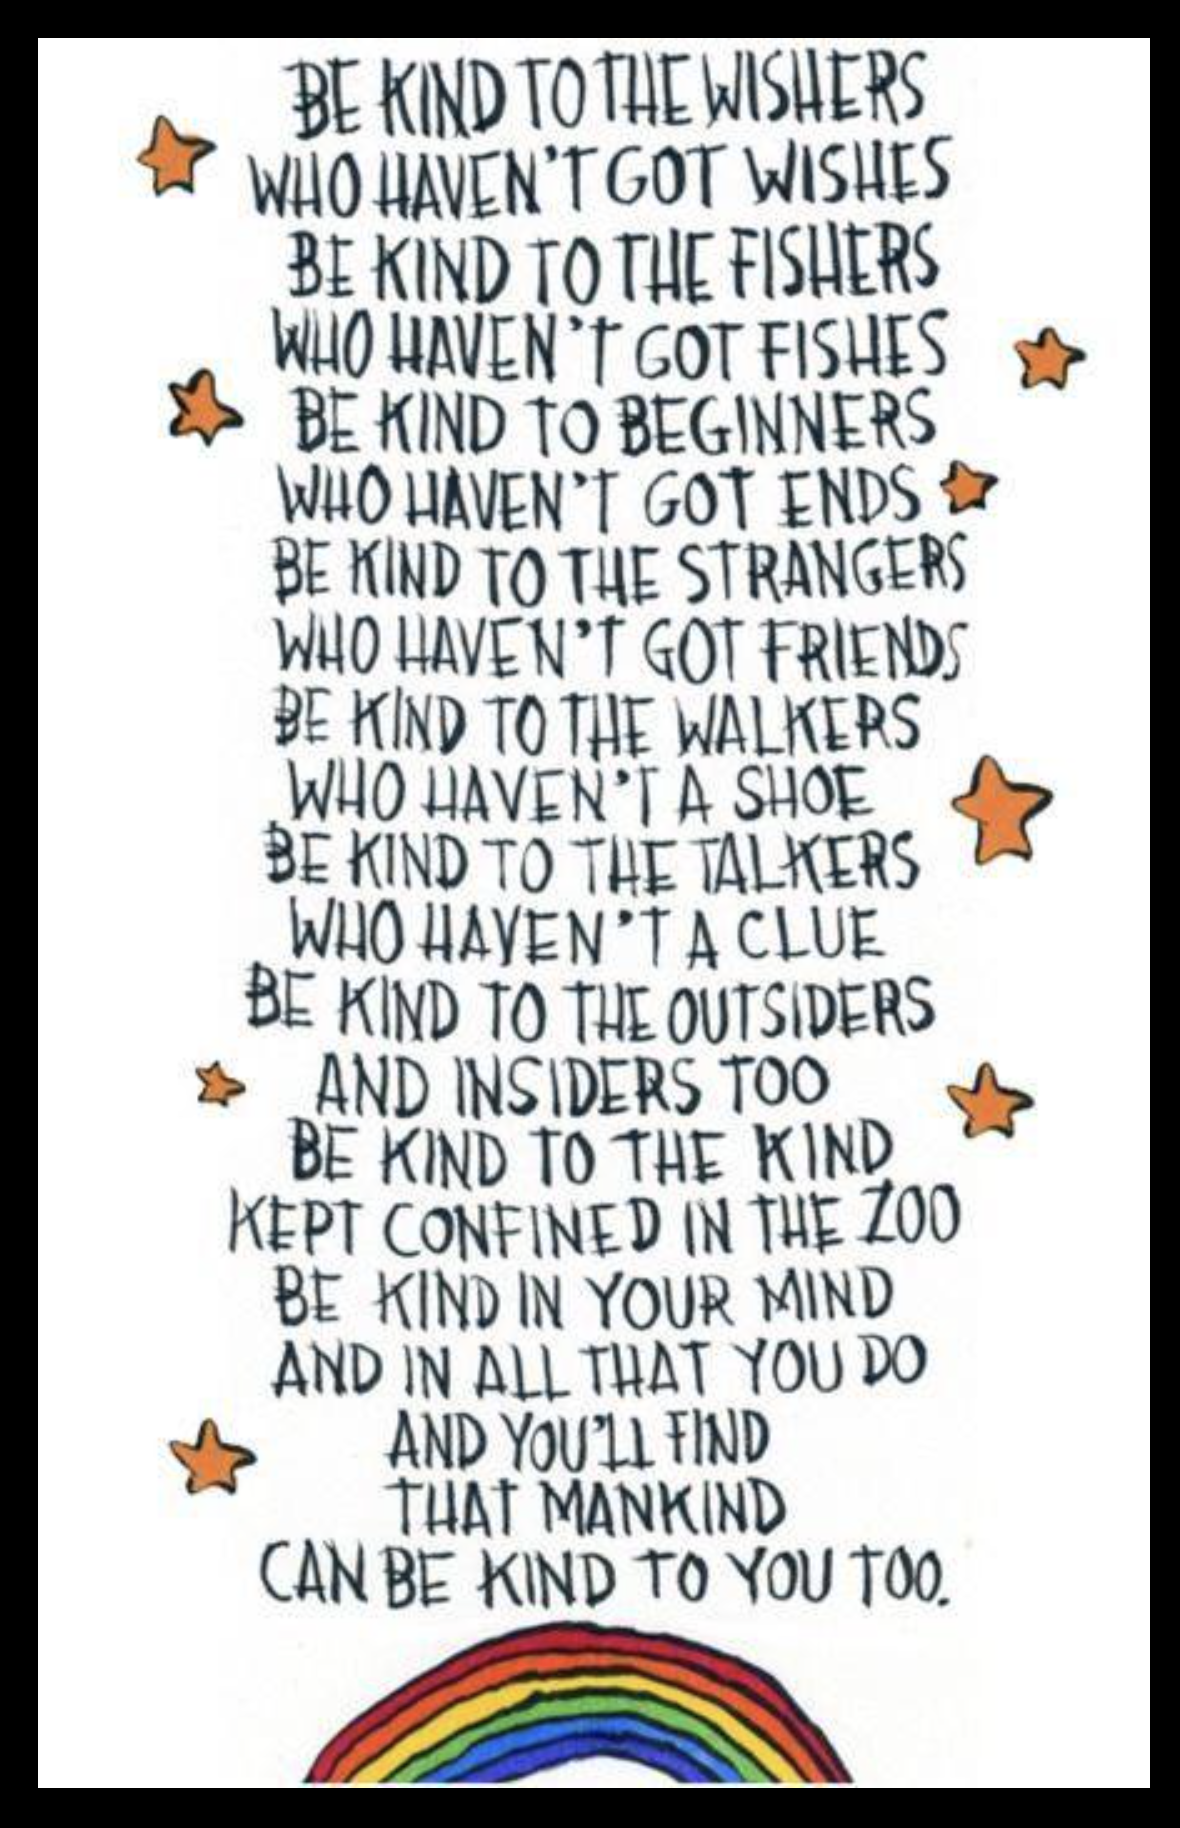 BE KIND TO THE WISHERS
WHO HAVEN'T GOT WISHES
BE KIND TO THE FISHERS
WHO HAVEN'T GOT FISHES
BE KIND TO BEGINNERS
WHO HAVEN'T GOT ENDS
BE KIND TO THE STRANGERS
WHO HAVEN'T GOT FRIENDS
BE KIND TO THE WALKERS
WHO HAVEN'T A SHOE
BE KIND TO THE TALKERS
WHO HAVEN'T A CLUE
BE KIND TO THE OUTSIDERS
AND INSIDERS TOO
BE KIND TO THE KIND
KEPT CONFINED IN THE ZOO
BE KIND IN YOUR MIND
AND IN ALL THAT YOU DO
AND YOU'LL FIND
THAT MANKIND
CAN BE KIND TO YOU TOO.